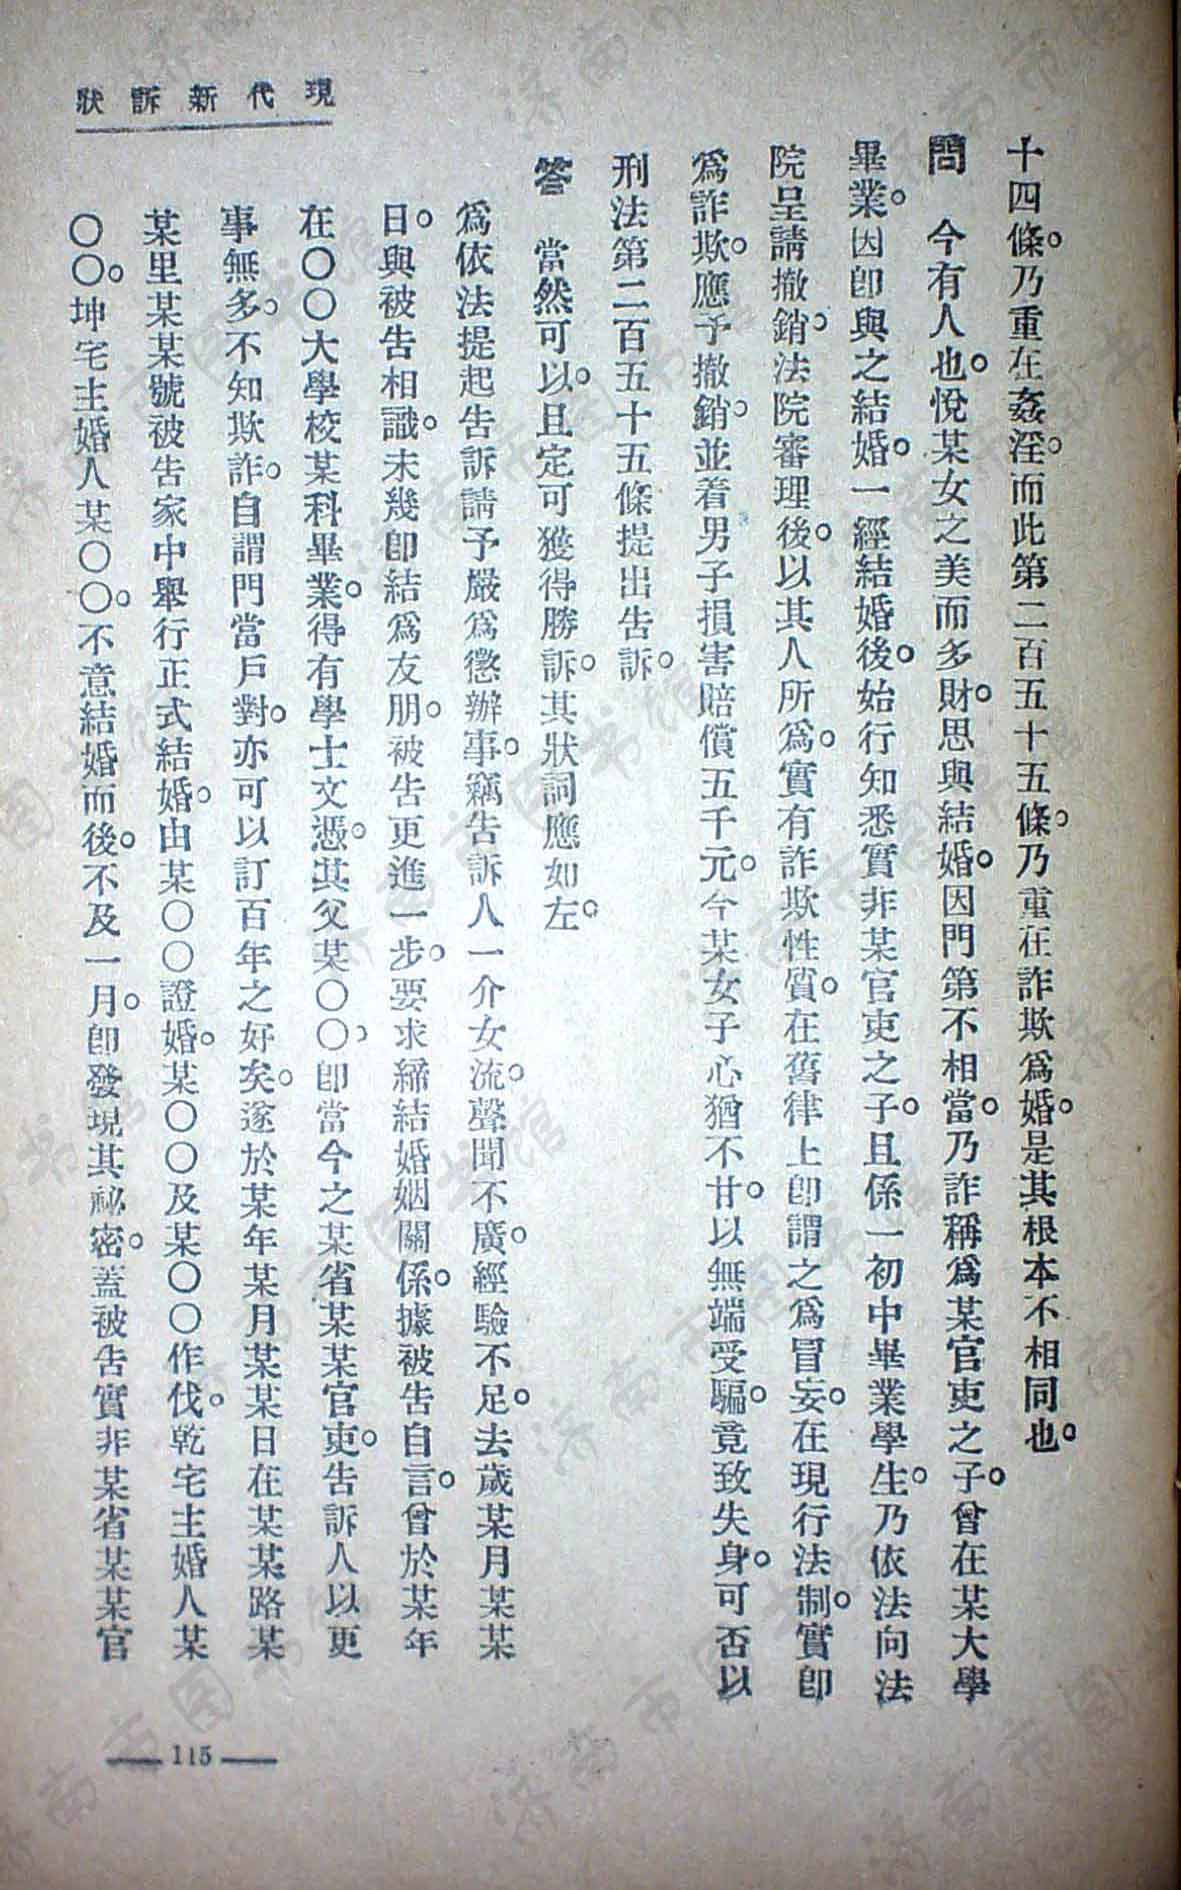 現代新訴狀
十四條。乃重在姦淫。而此第二百五十五條。乃重在詐欺爲婚。是其根本不相同也。
問　今有人也。悅某女之美而多財。思與結婚。因門第不相當。乃詐稱爲某官吏之子。曾在某大學
畢業。因卽與之結婚。一經結婚後。始行知悉實非某官吏之子。且係一初中畢業學生。乃依法向法
院呈請撤銷。法院審理後。以其人所爲。實有詐欺性質。在舊律上卽謂之爲冒妄。在現行法制。實卽
爲詐欺。應予撤銷。並着男子損害賠償五千元。今某女子心猶不甘。以無端受騙。竟致失身。可否以
刑法第二百五十五條提出告訴。
答　當然可以。且定可獲得勝訴。其狀詞應如左。
爲依法提起告訴請予嚴爲懲辦事。竊告訴人一介女流。聲聞不廣。經驗不足。去歲某月某某
日。與被告相識。未幾卽結爲友朋。被告更進一步。要求締結婚姻關係。據被告自言。曾於某年
在〇〇大學校某科畢業。得有學士文憑。其父某〇〇。卽當今之某省某某官吏。告訴人以更
事無多。不知欺詐。自謂門當戶對。亦可以訂百年之好矣。遂於某年某月某某日在某某路某
某里某某號被告家中舉行正式結婚。由某〇〇證婚。某〇〇及某〇〇作伐。乾宅主婚人某
〇〇。坤宅主婚人某〇〇。不意結婚而後。不及一月。卽發現其祕密。蓋被告實非某省某某官
115
济南市图书馆